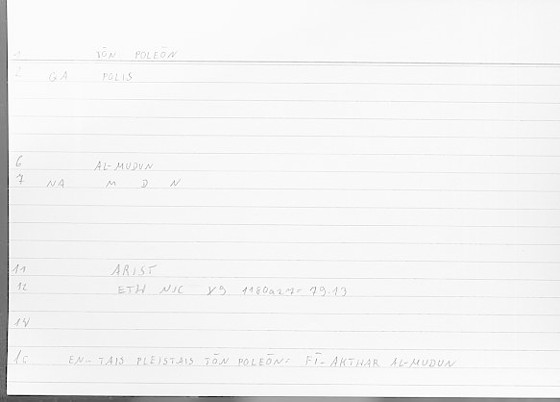 1 TŌN POLEŌN
2 GA POLIS
6 AL-MUDUN
7 NA M D N
11 ARIST
12 ETH NIC X9 1180a27= 79.13
14
15 EN- TAIS PLEISTAIS TŌN POLEŌN= FĪ- AKTHAR AL-MUDUN